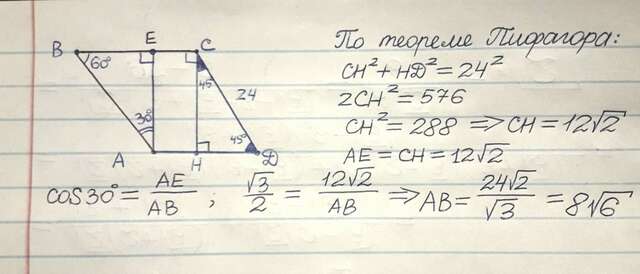 B E C
60°
45°
24
30°
45°
A H D
По теореме Пифагора:
CH²+HD²=24²
2CH²=576
CH²=288 ⟹ CH=12√2
AE=CH=12√2
cos30°=AE/AB ; √3/2 = 12√2/AB ⟹ AB= 24√2/√3 =8√6